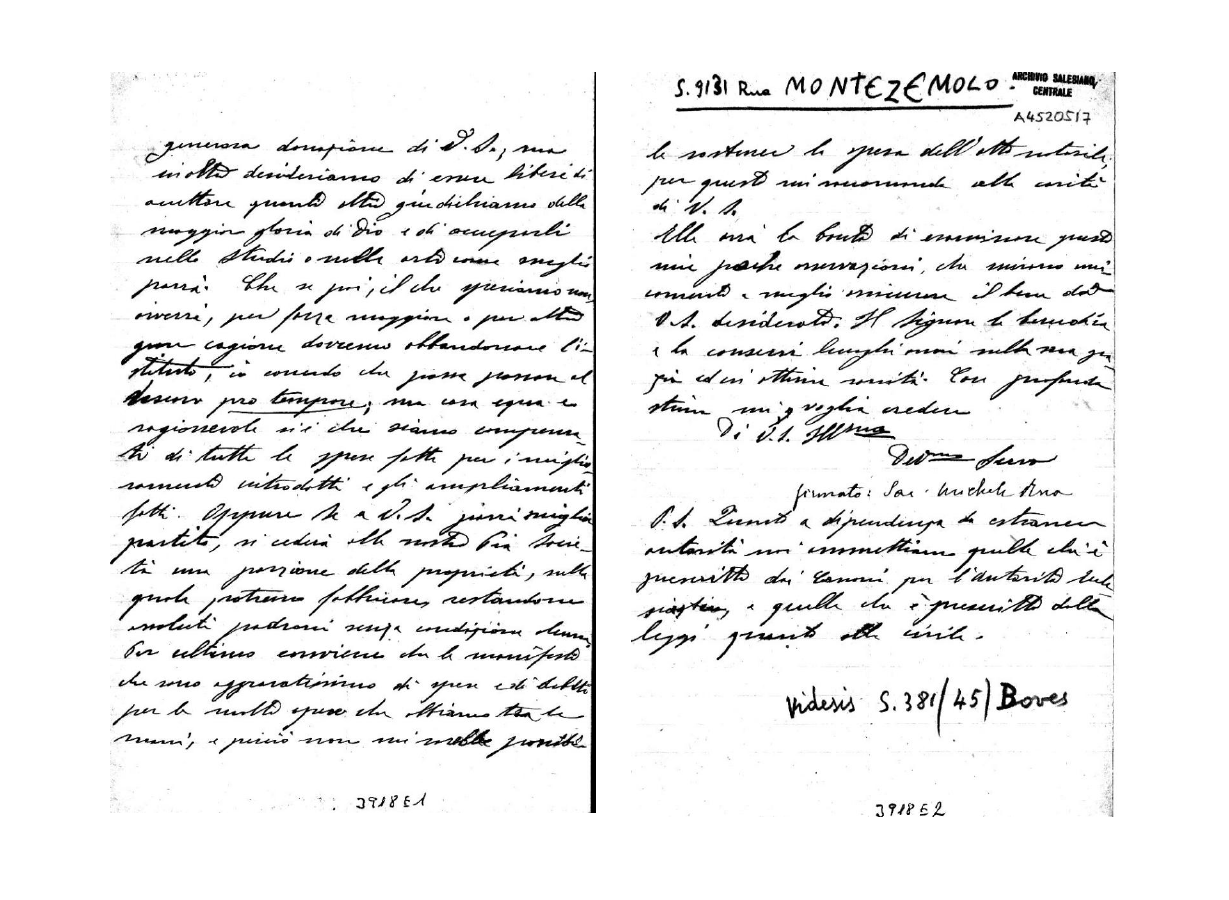 generosa donazione di V. S., ma
inoltre desideriamo di essere liberi di
accettare quanti altri giudichiamo della
maggior gloria di Dio e di occuparli
nello studio o nelle arti come meglio
parrà. Che se poi, il che speriamo non
avverrà, per forza maggiore o per altra
grave cagione dovremo abbandonare l'i-
stituto, io concedo che possa passare al
Vescovo pro tempore; ma cosa equa e
ragionevole si è che siamo compensa-
ti di tutte le spese fatte per i miglio-
ramenti introdotti e gli ampliamenti
fatti. Oppure se a V. S. parrà miglior
partito, si cederà alla nostra Pia Socie-
tà una porzione della proprietà, nella
quale potremo fabbricare, restandone
assoluti padroni senza condizione alcuna.
Per ultimo conviene che le manifesti
che sono aggravatissimo di spese e di debiti
per le molte opere che abbiamo tra le
mani, e perciò non mi sarebbe possibi-
3918E1
S.9131 Rua MONTEZEMOLO.
ARCHIVIO SALESIANO
CENTRALE
A4520517
le sostener le spese dell'atto notarile,
per questo mi raccomando alla carità
di V. S.
Ella avrà la bontà di esaminare queste
mie poche osservazioni, che mirano uni-
camente a meglio assicurare il bene da
V. S. desiderato. Il Signore la benedica
e la conservi lunghi anni nella sua gra-
zia ed in ottima sanità. Con profonda
stima mi voglia credere
Di V. S. Ill.ma
Dev.mo Servo
firmato: Sac. Michele Rua
P. S. Quanto a dipendenza da estranea
autorità noi ammettiamo quella che è
prescritta dai Canoni per l'Autorità Eccle
siastica, e quella che è prescritta dalle
leggi quanto alla civile.
Videsis S.381/45/Boves
3918E2